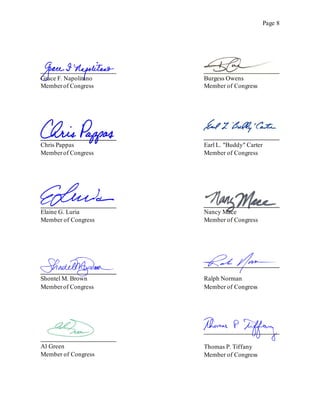 Page 8
Grace F. Napolitano
Grace F. Napolitano
Member of Congress
Burgess Owens
Member of Congress
Chris Pappas
Chris Pappas
Member of Congress
Earl L. "Buddy" Carter
Earl L. "Buddy" Carter
Member of Congress
Elaine G. Luria
Member of Congress
Nancy Mace
Nancy Mace
Member of Congress
Shontel M. Brown
Shontel M. Brown
Member of Congress
Ralph Norman
Member of Congress
Al Green
Member of Congress
Thomas P. Tiffany
Thomas P. Tiffany
Member of Congress